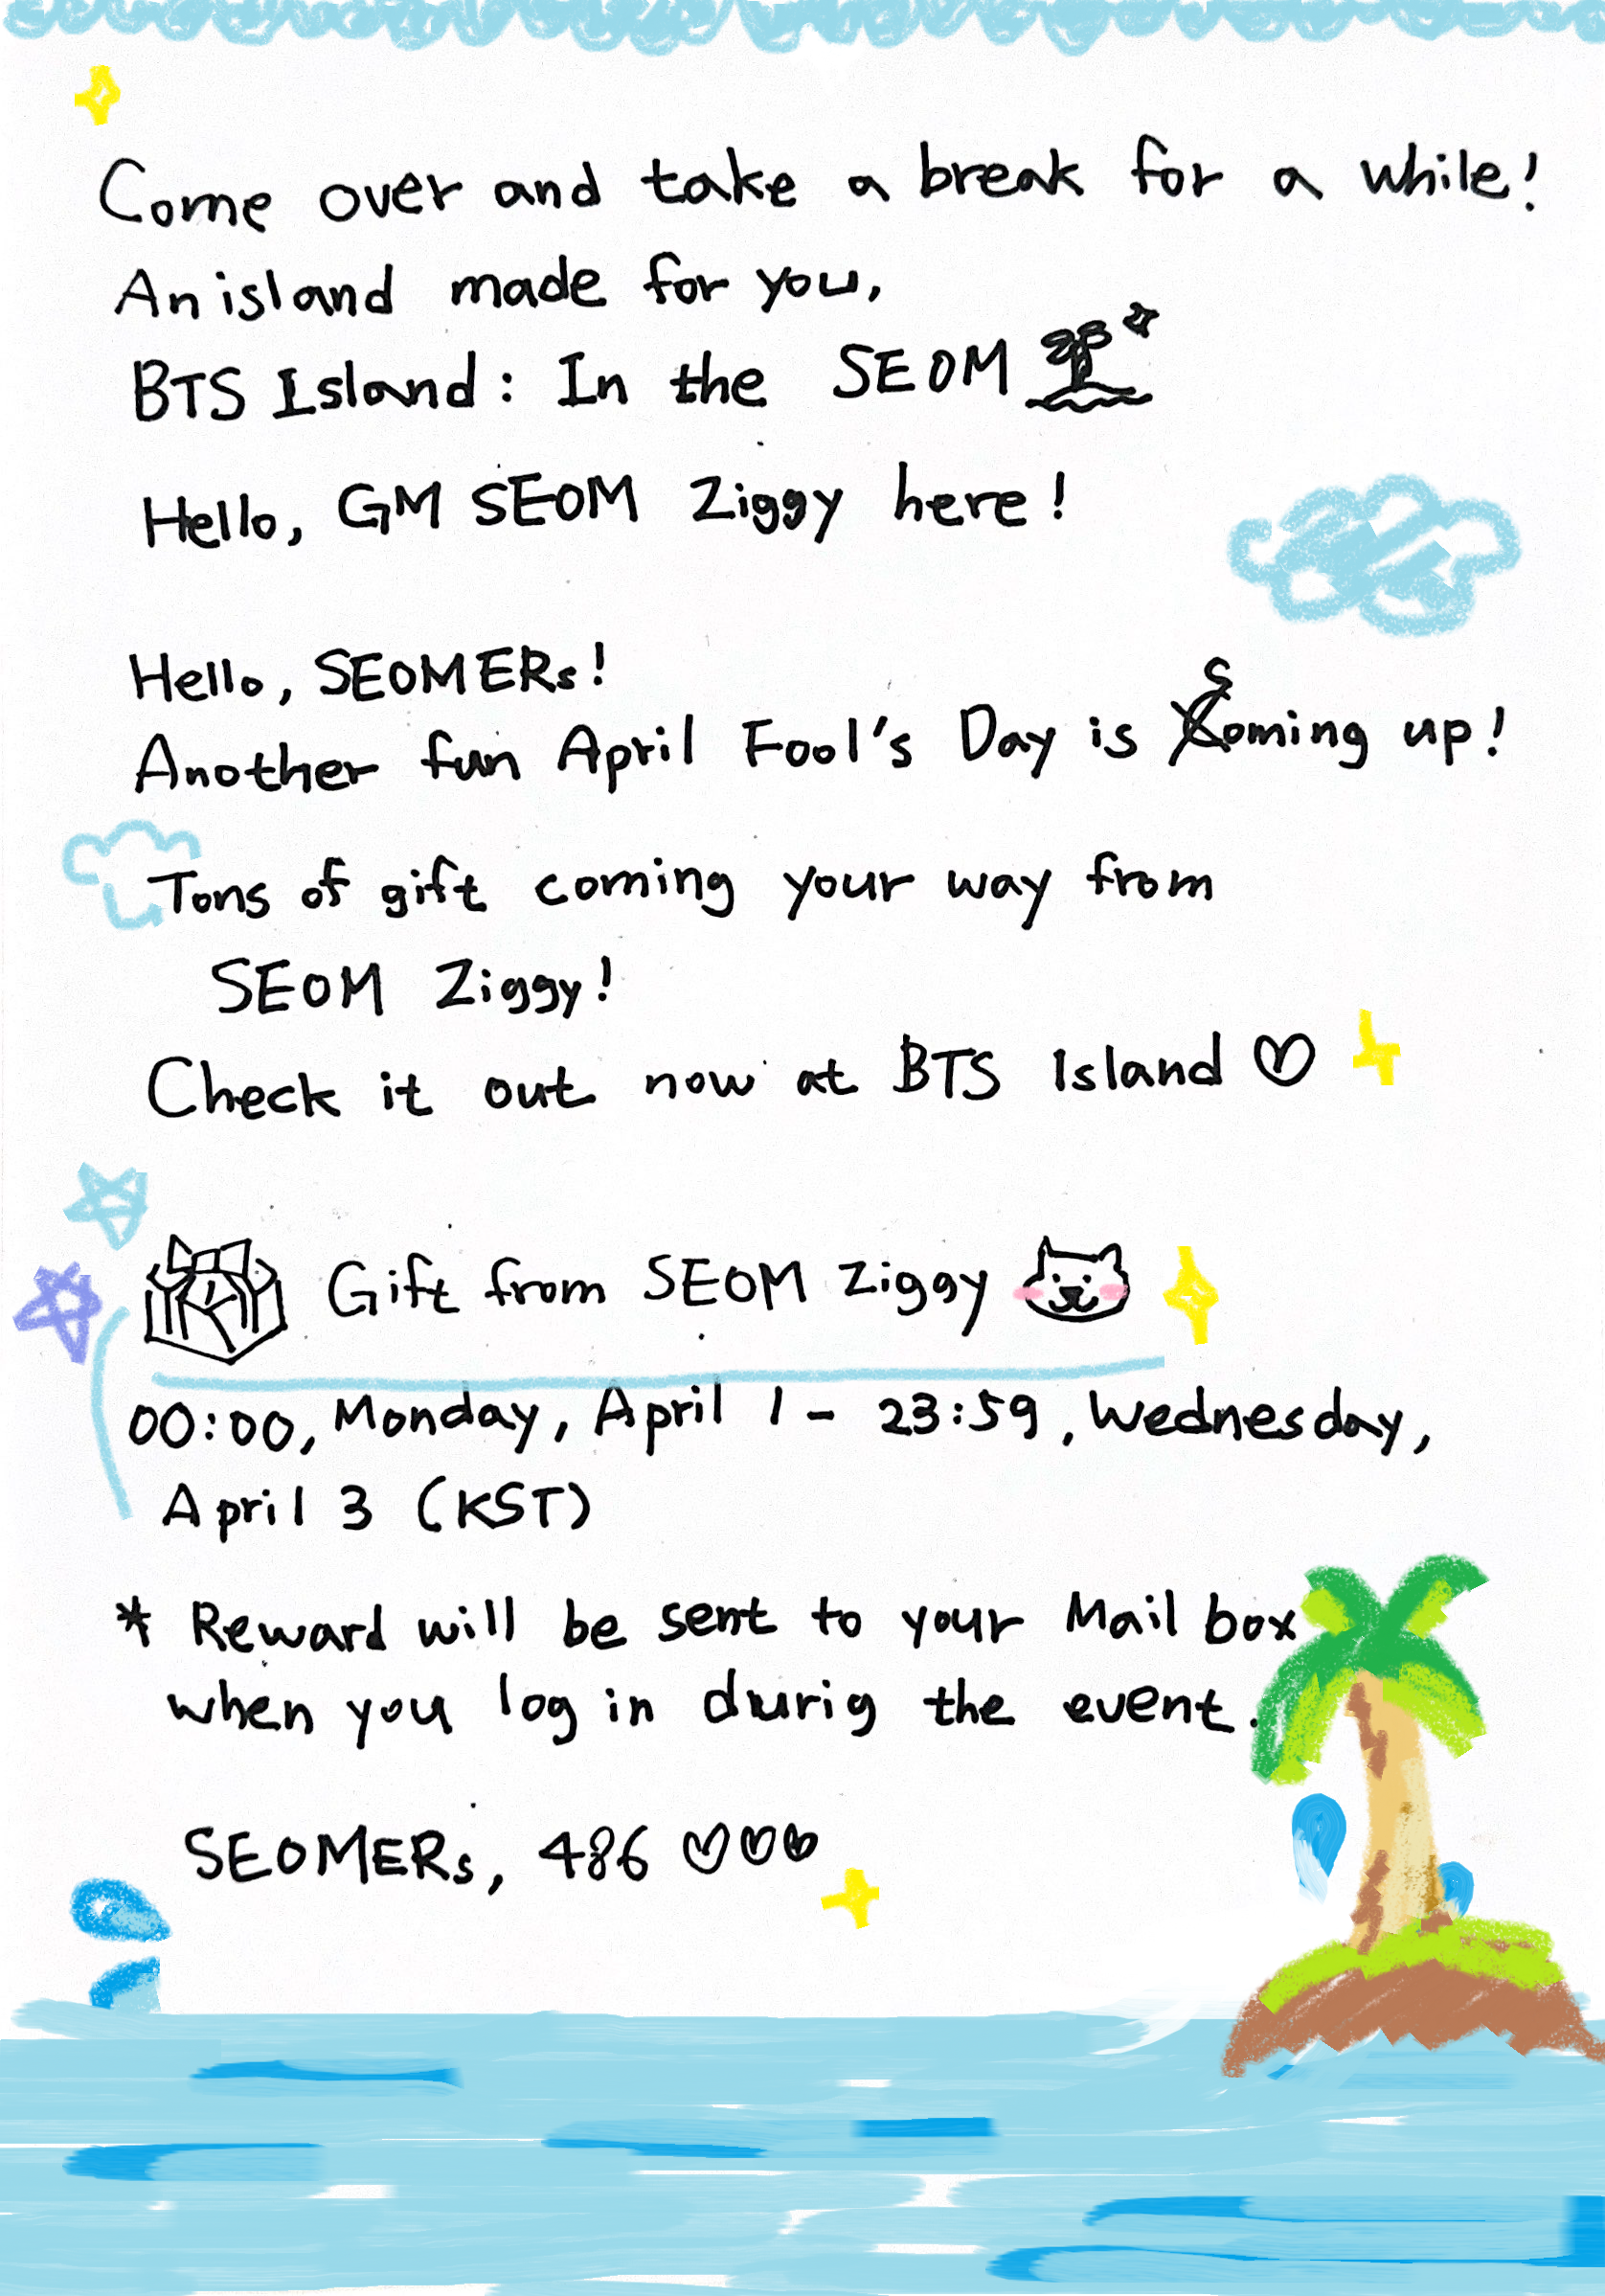 Come over and take a break for a while!
An island made for you,
BTS Island: In the SEOM
Hello, GM SEOM Ziggy here!
Hello, SEOMERs!
Another fun April Fool's Day is coming up!
Tons of gift coming your way from
SEOM Ziggy!
Check it out now at BTS Island ♡
Gift from SEOM Ziggy
00:00, Monday, April 1 - 23:59, Wednesday,
April 3 (KST)
* Reward will be sent to your Mail box
when you log in durig the event.
SEOMERs, 486 ♡♡♡